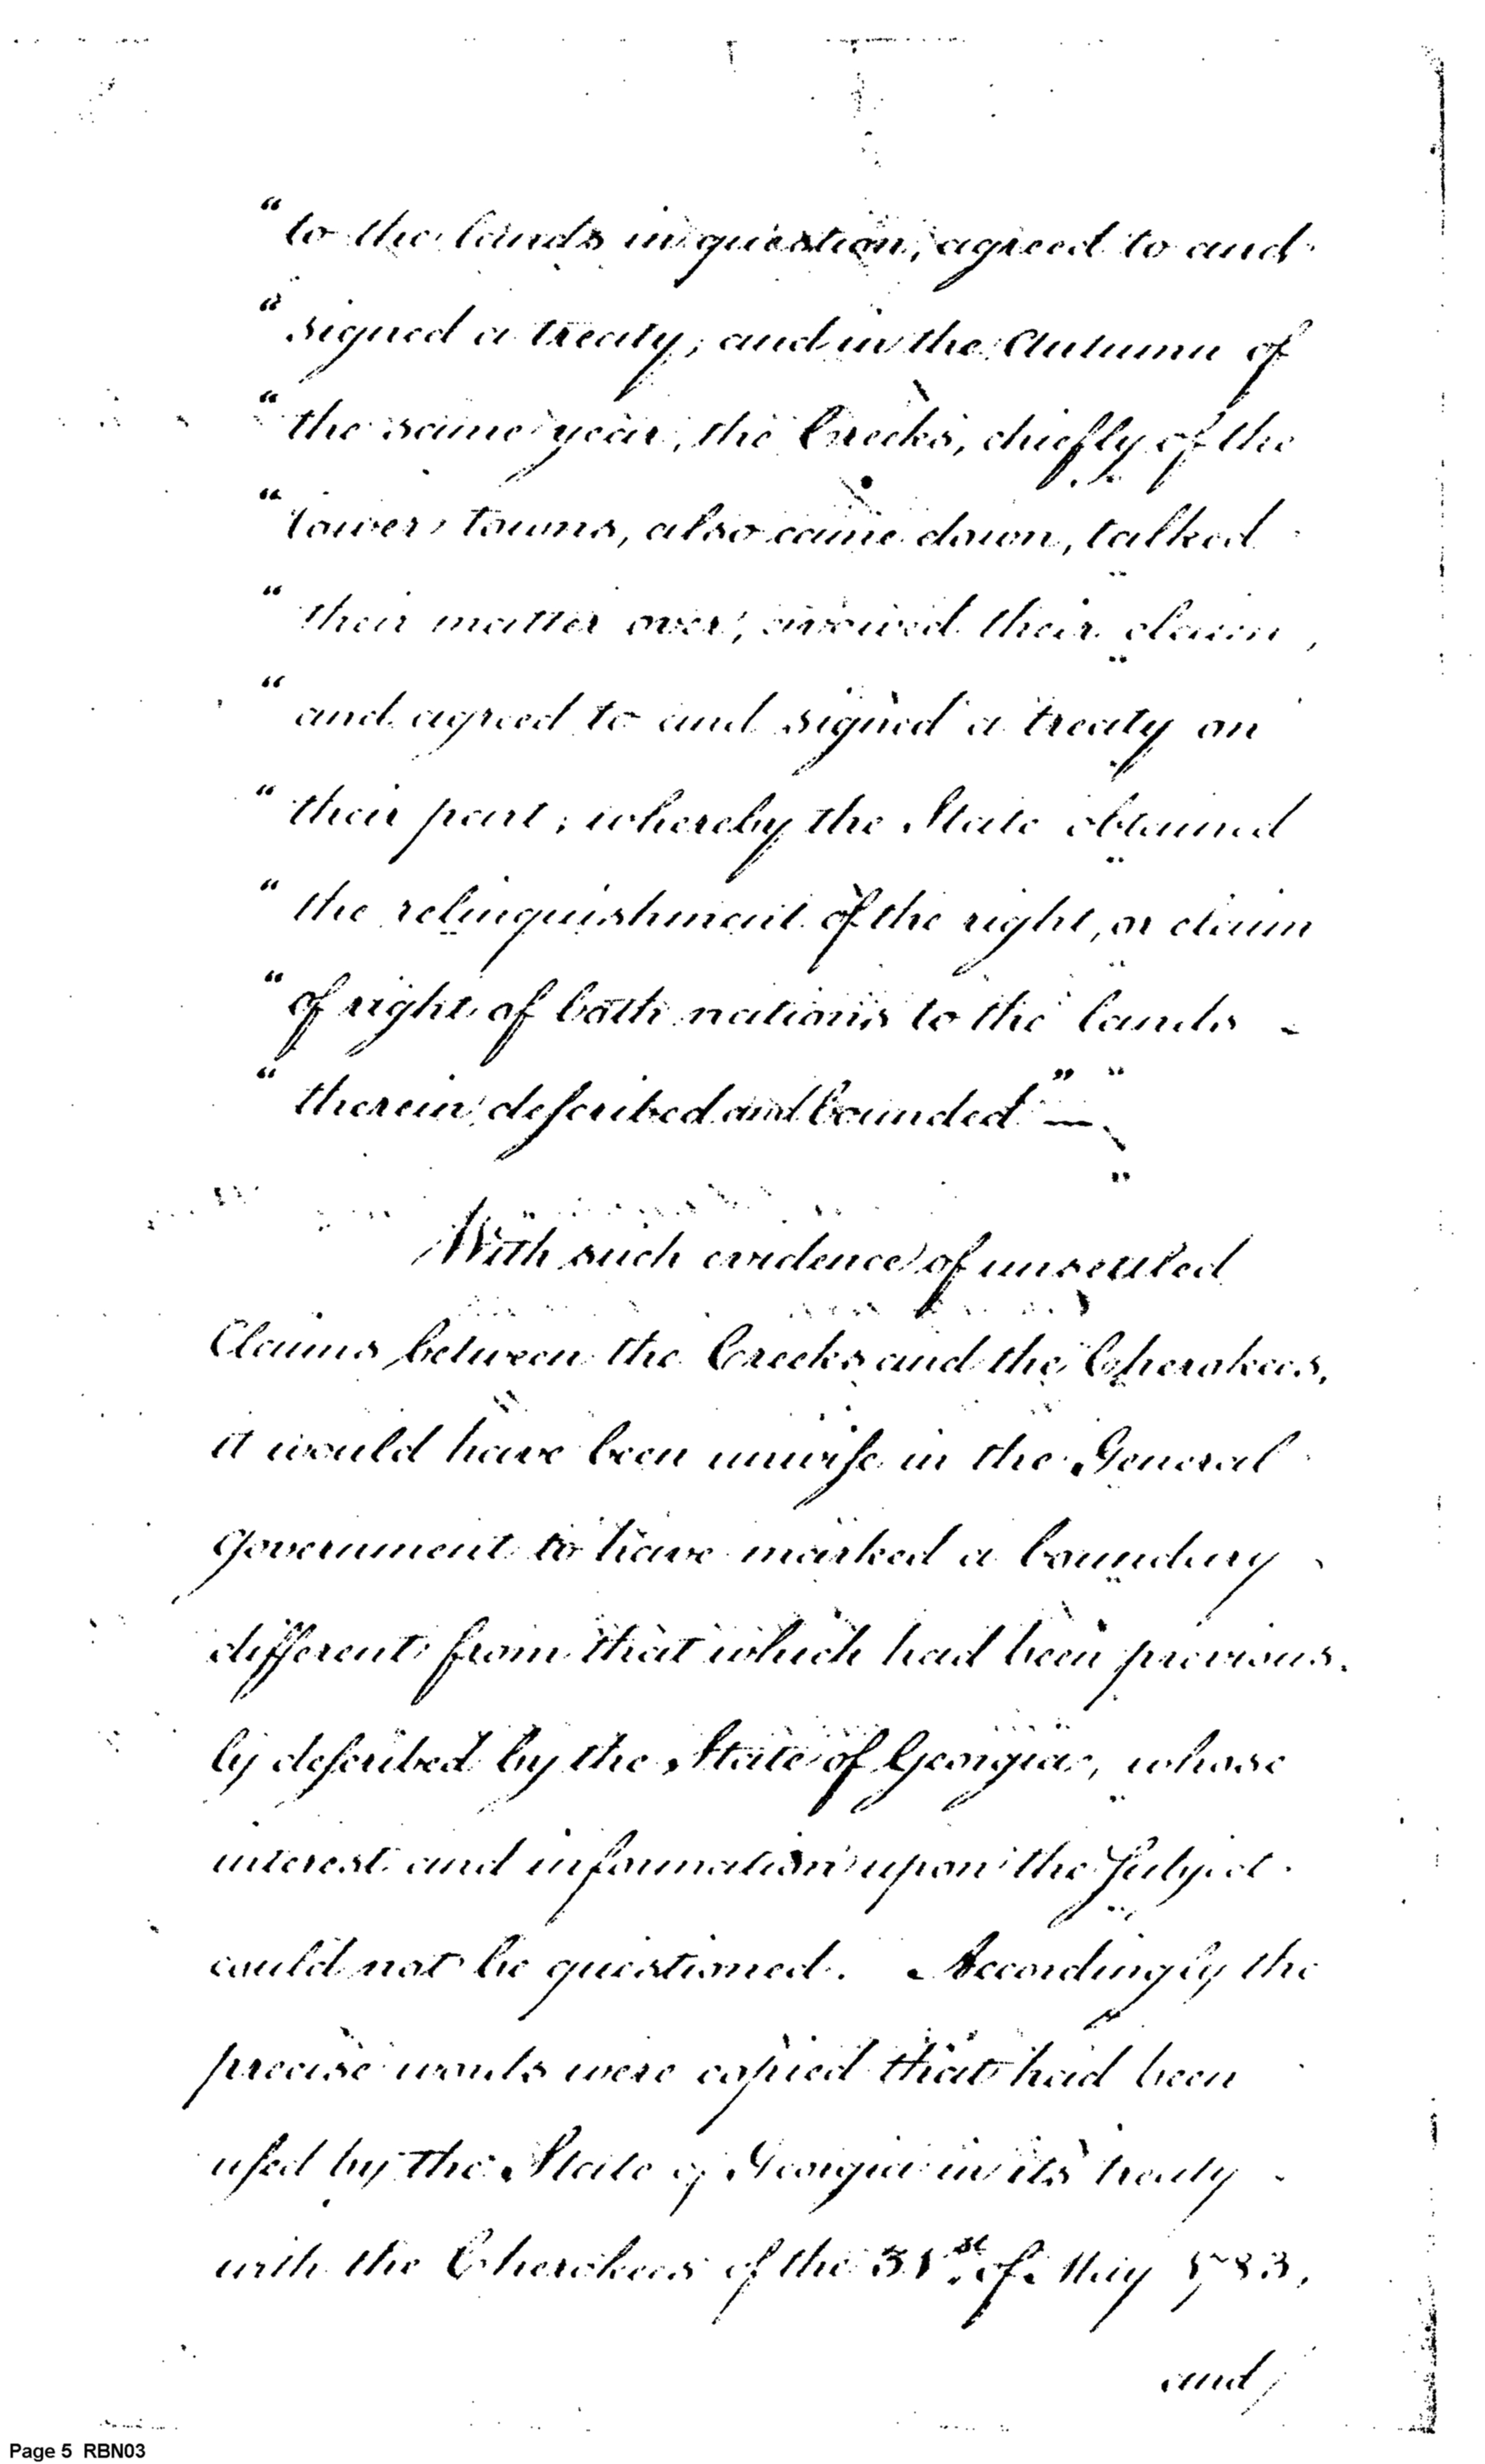 “to the lands in question, agreed to and
“signed a treaty; and in the Autumn of
“the same year, the Creeks, chiefly of the
“lower towns, also came down, talked
“their matter over, avowed their claim,
“and agreed to and signed a treaty on
“their part; whereby the State obtained
“the relinquishment of the right, or claim
“of right of both nations to the lands
“therein described and bounded” —
With such evidence of unsettled
Claims between the Creeks and the Cherokees,
it would have been unwise in the General
government to have marked a boundary
different from that which had been previous-
ly described by the State of Georgia, whose
interest and information upon the Subject
could not be questioned. Accordingly the
precise words were copied that had been
used by the State of Georgia in its treaty
with the Cherokees of the 31st of May 1783,
and
Page 5 RBN03